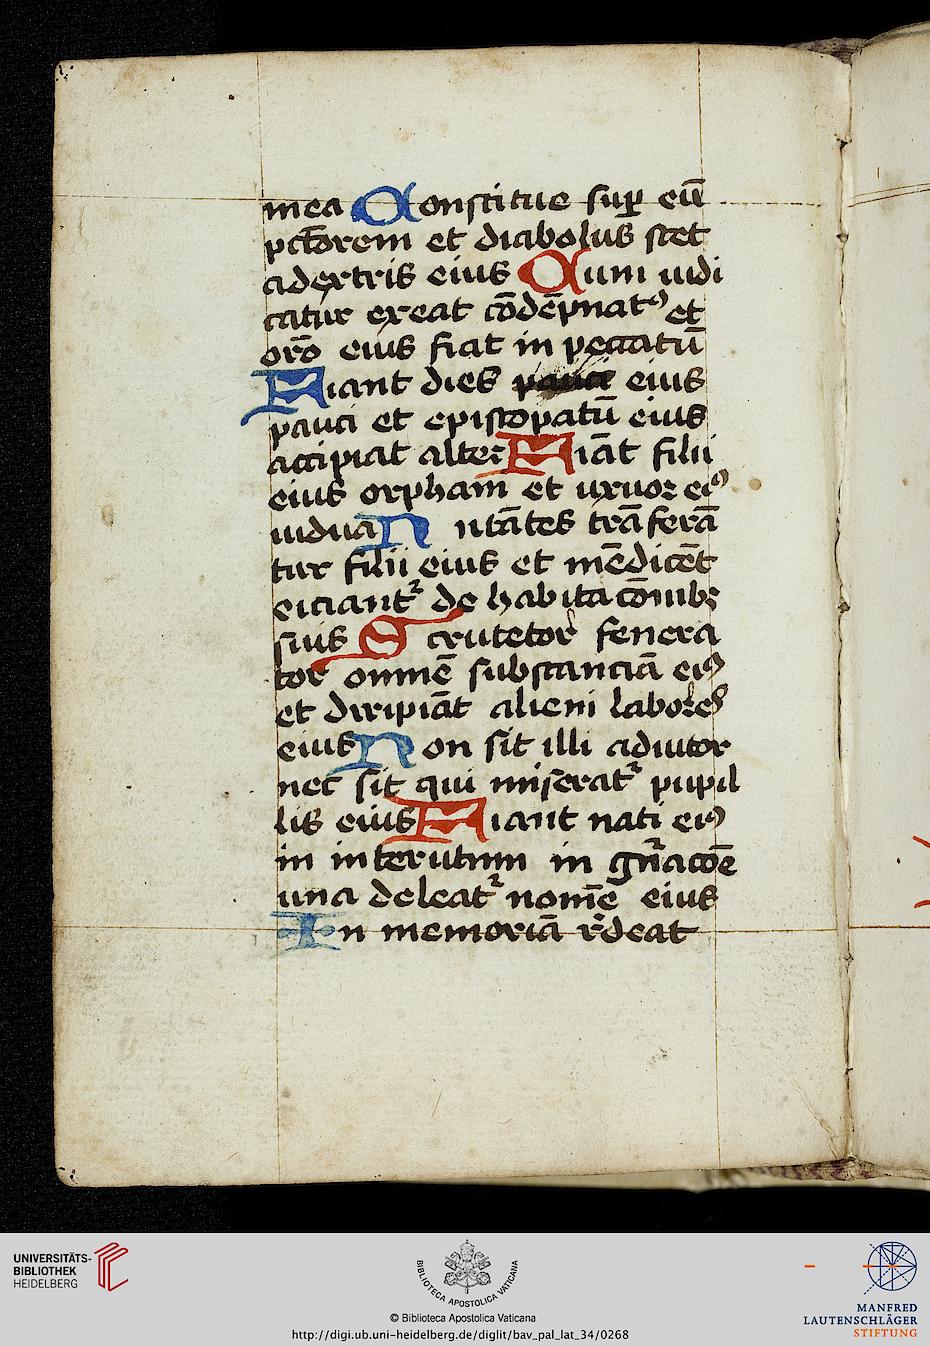 mea Constitue suꝑ eū
pctōrem et diabolus stet
adextris eius Cum iudi
catur exeat cōdēpnatꝰ et
orō eius fiat in peccatū
Fiant dies pauci eius
pauci et episcopatū eius
accipiat alter Fiāt filii
eius orphani et uxuor eiꝰ
uidua Nutātes trāferā
tur filii eius et mēdicēt
eiciantᷣ de habitacōnibꝫ
suis Scrutetor fenera
tor omnē substanciā eiꝰ
et diripiāt alieni labores
eius Non sit illi adiutor
nec sit qui miseratᷣ pupil
lis eius Fiant nati eiꝰ
in interutum in gn̄acōe
una deleatᷣ nomē eius
In memoriā rͥdeat
UNIVERSITÄTS-
BIBLIOTHEK
HEIDELBERG
BIBLIOTECA APOSTOLICA VATICANA
© Biblioteca Apostolica Vaticana
http://digi.ub.uni-heidelberg.de/diglit/bav_pal_lat_34/0268
MANFRED
LAUTENSCHLÄGER
STIFTUNG